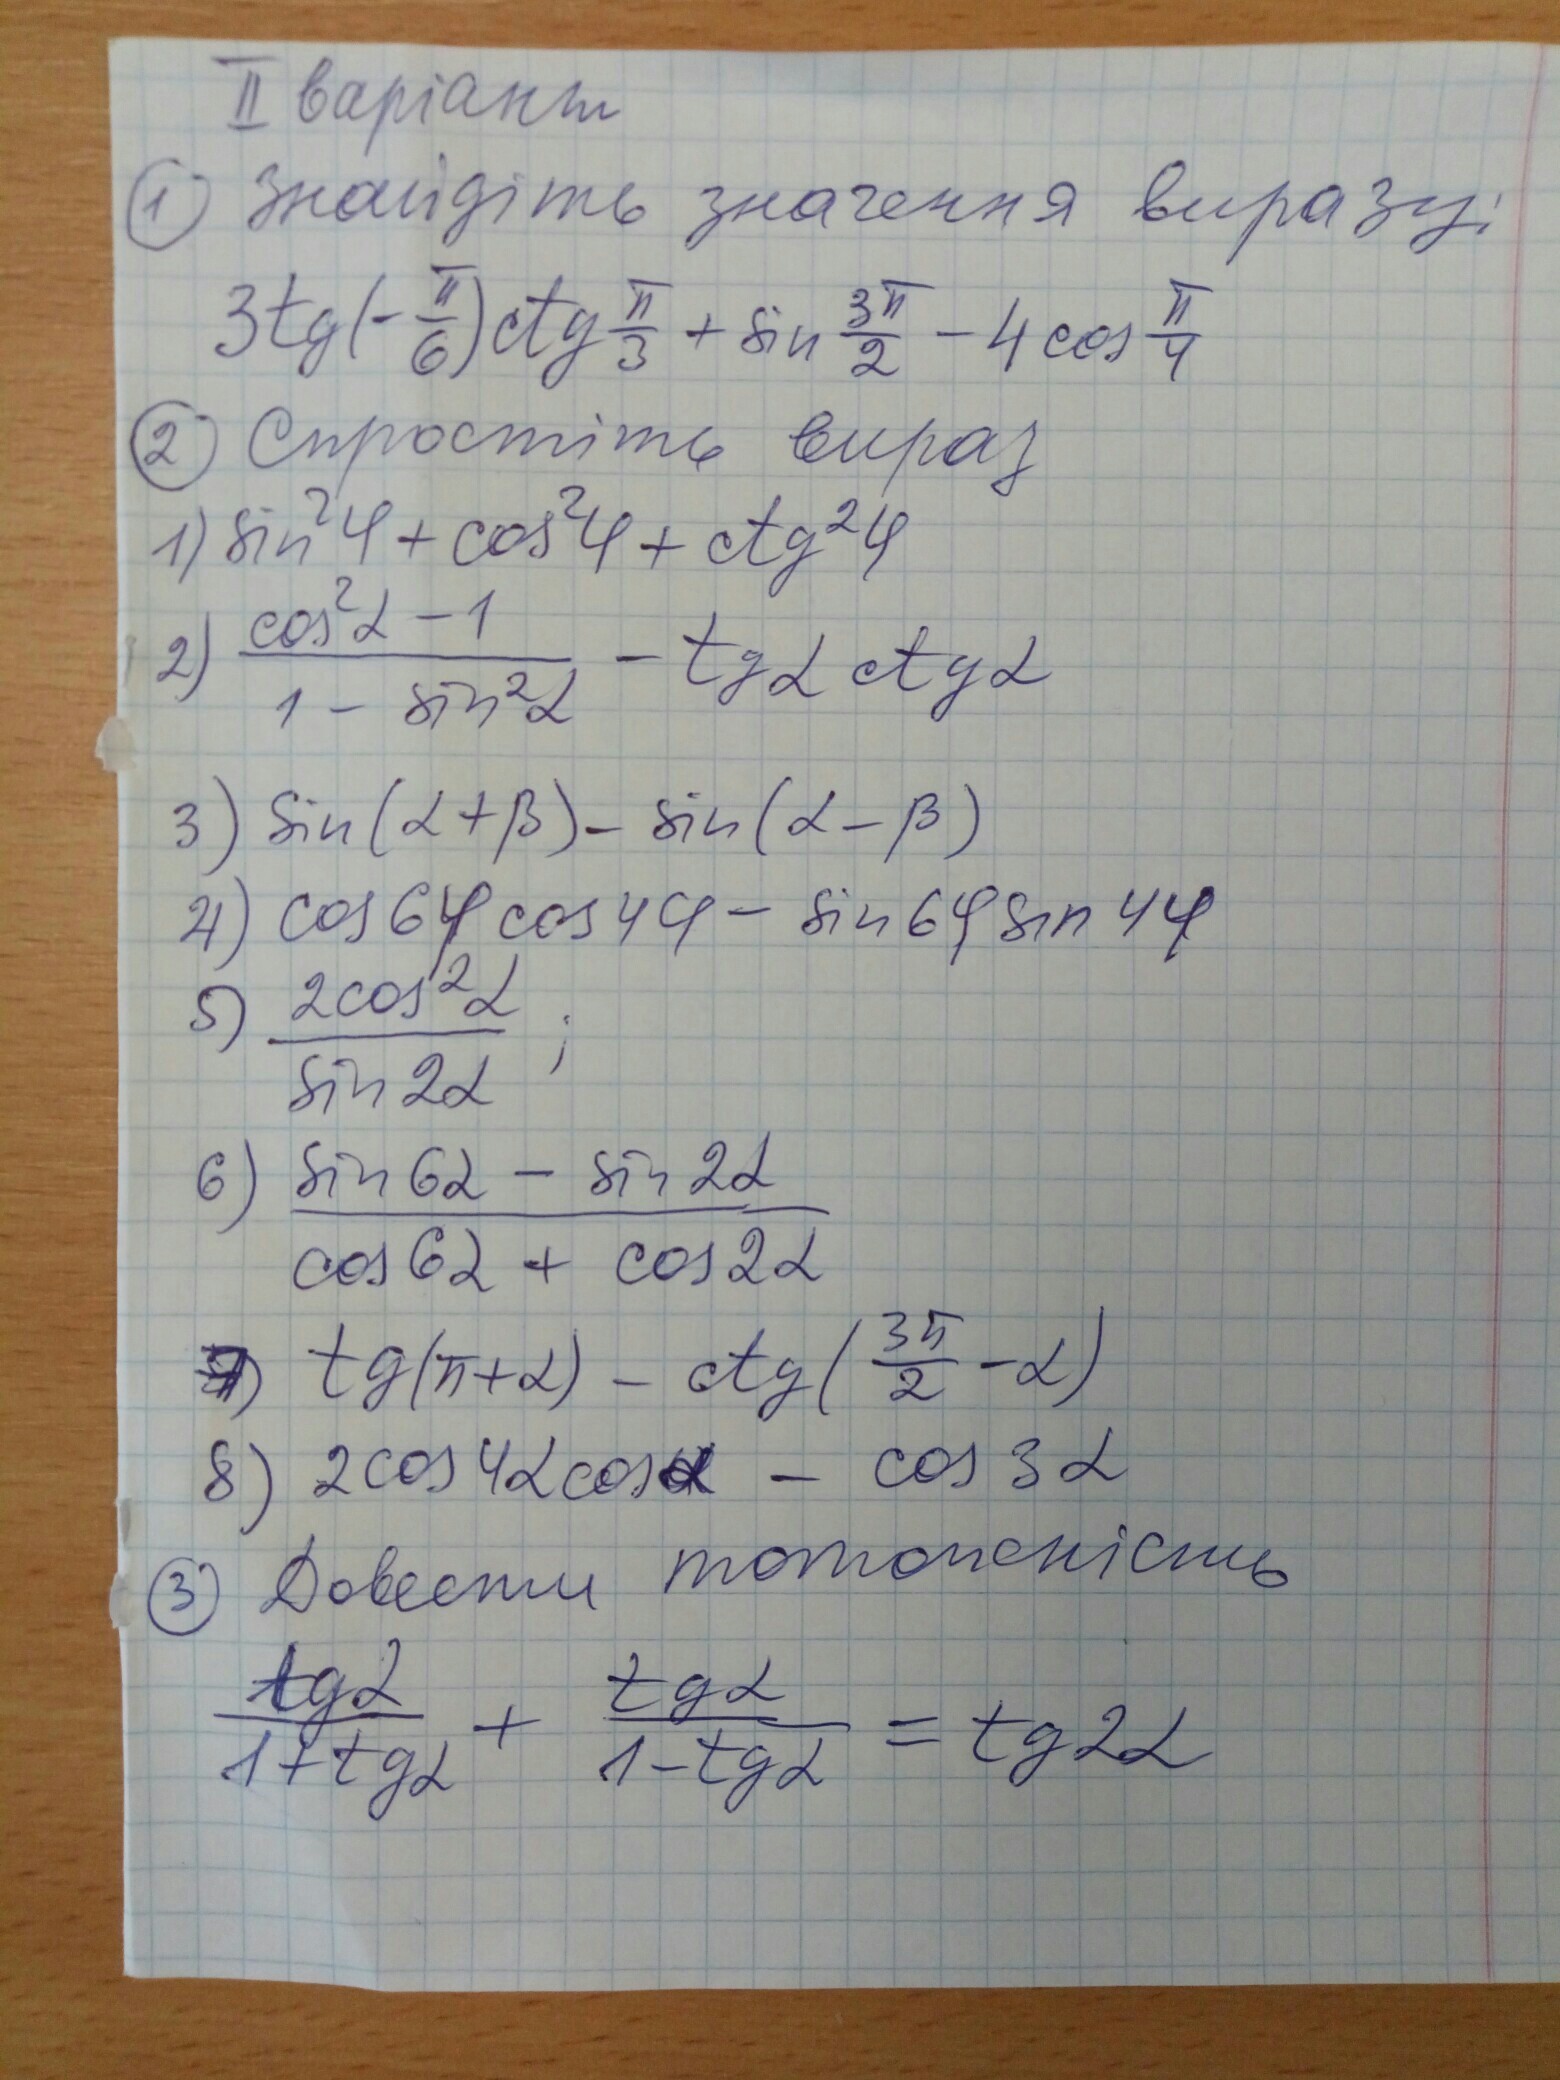 II варіант
① Знайдіть значення виразу:
3tg(-π/6)ctg π/3 + sin 3π/2 - 4cos π/4
② Спростіть вираз
1) sin²φ + cos²φ + ctg²φ
2) (cos²α - 1)/(1 - sin²α) - tgα ctgα
3) sin(α+β) - sin(α-β)
4) cos6φ cos4φ - sin6φ sin4φ
5) 2cos²α/sin2α ;
6) (sin6α - sin2α)/(cos6α + cos2α)
7) tg(π+α) - ctg(3π/2 - α)
8) 2cos4α cosα - cos3α
③ Довести тотожність
tgα/(1+tgα) + tgα/(1-tgα) = tg2α